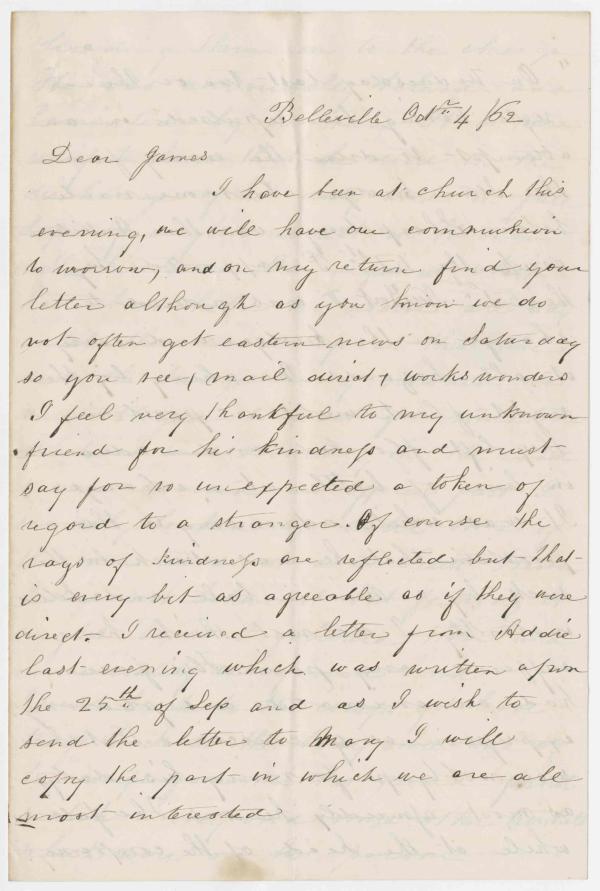 Belleville Oct 4 /62
Dear James
I have been at church this
evening, we will have our communion
to morrow, and on my return find your
letter although as you know we do
not often get eastern news on Saturday
so you see, mail direct, works wonders
I feel very thankful to my unknown
friend for his kindness and must
say for so unexpected a token of
regard to a stranger. Of course the
rays of kindness are reflected but that
is every bit as agreeable as if they were
direct. I received a letter from Addie
last evening which was written upon
the 25th of Sep and as I wish to
send the letter to Mary I will
copy the part in which we are all
most interested